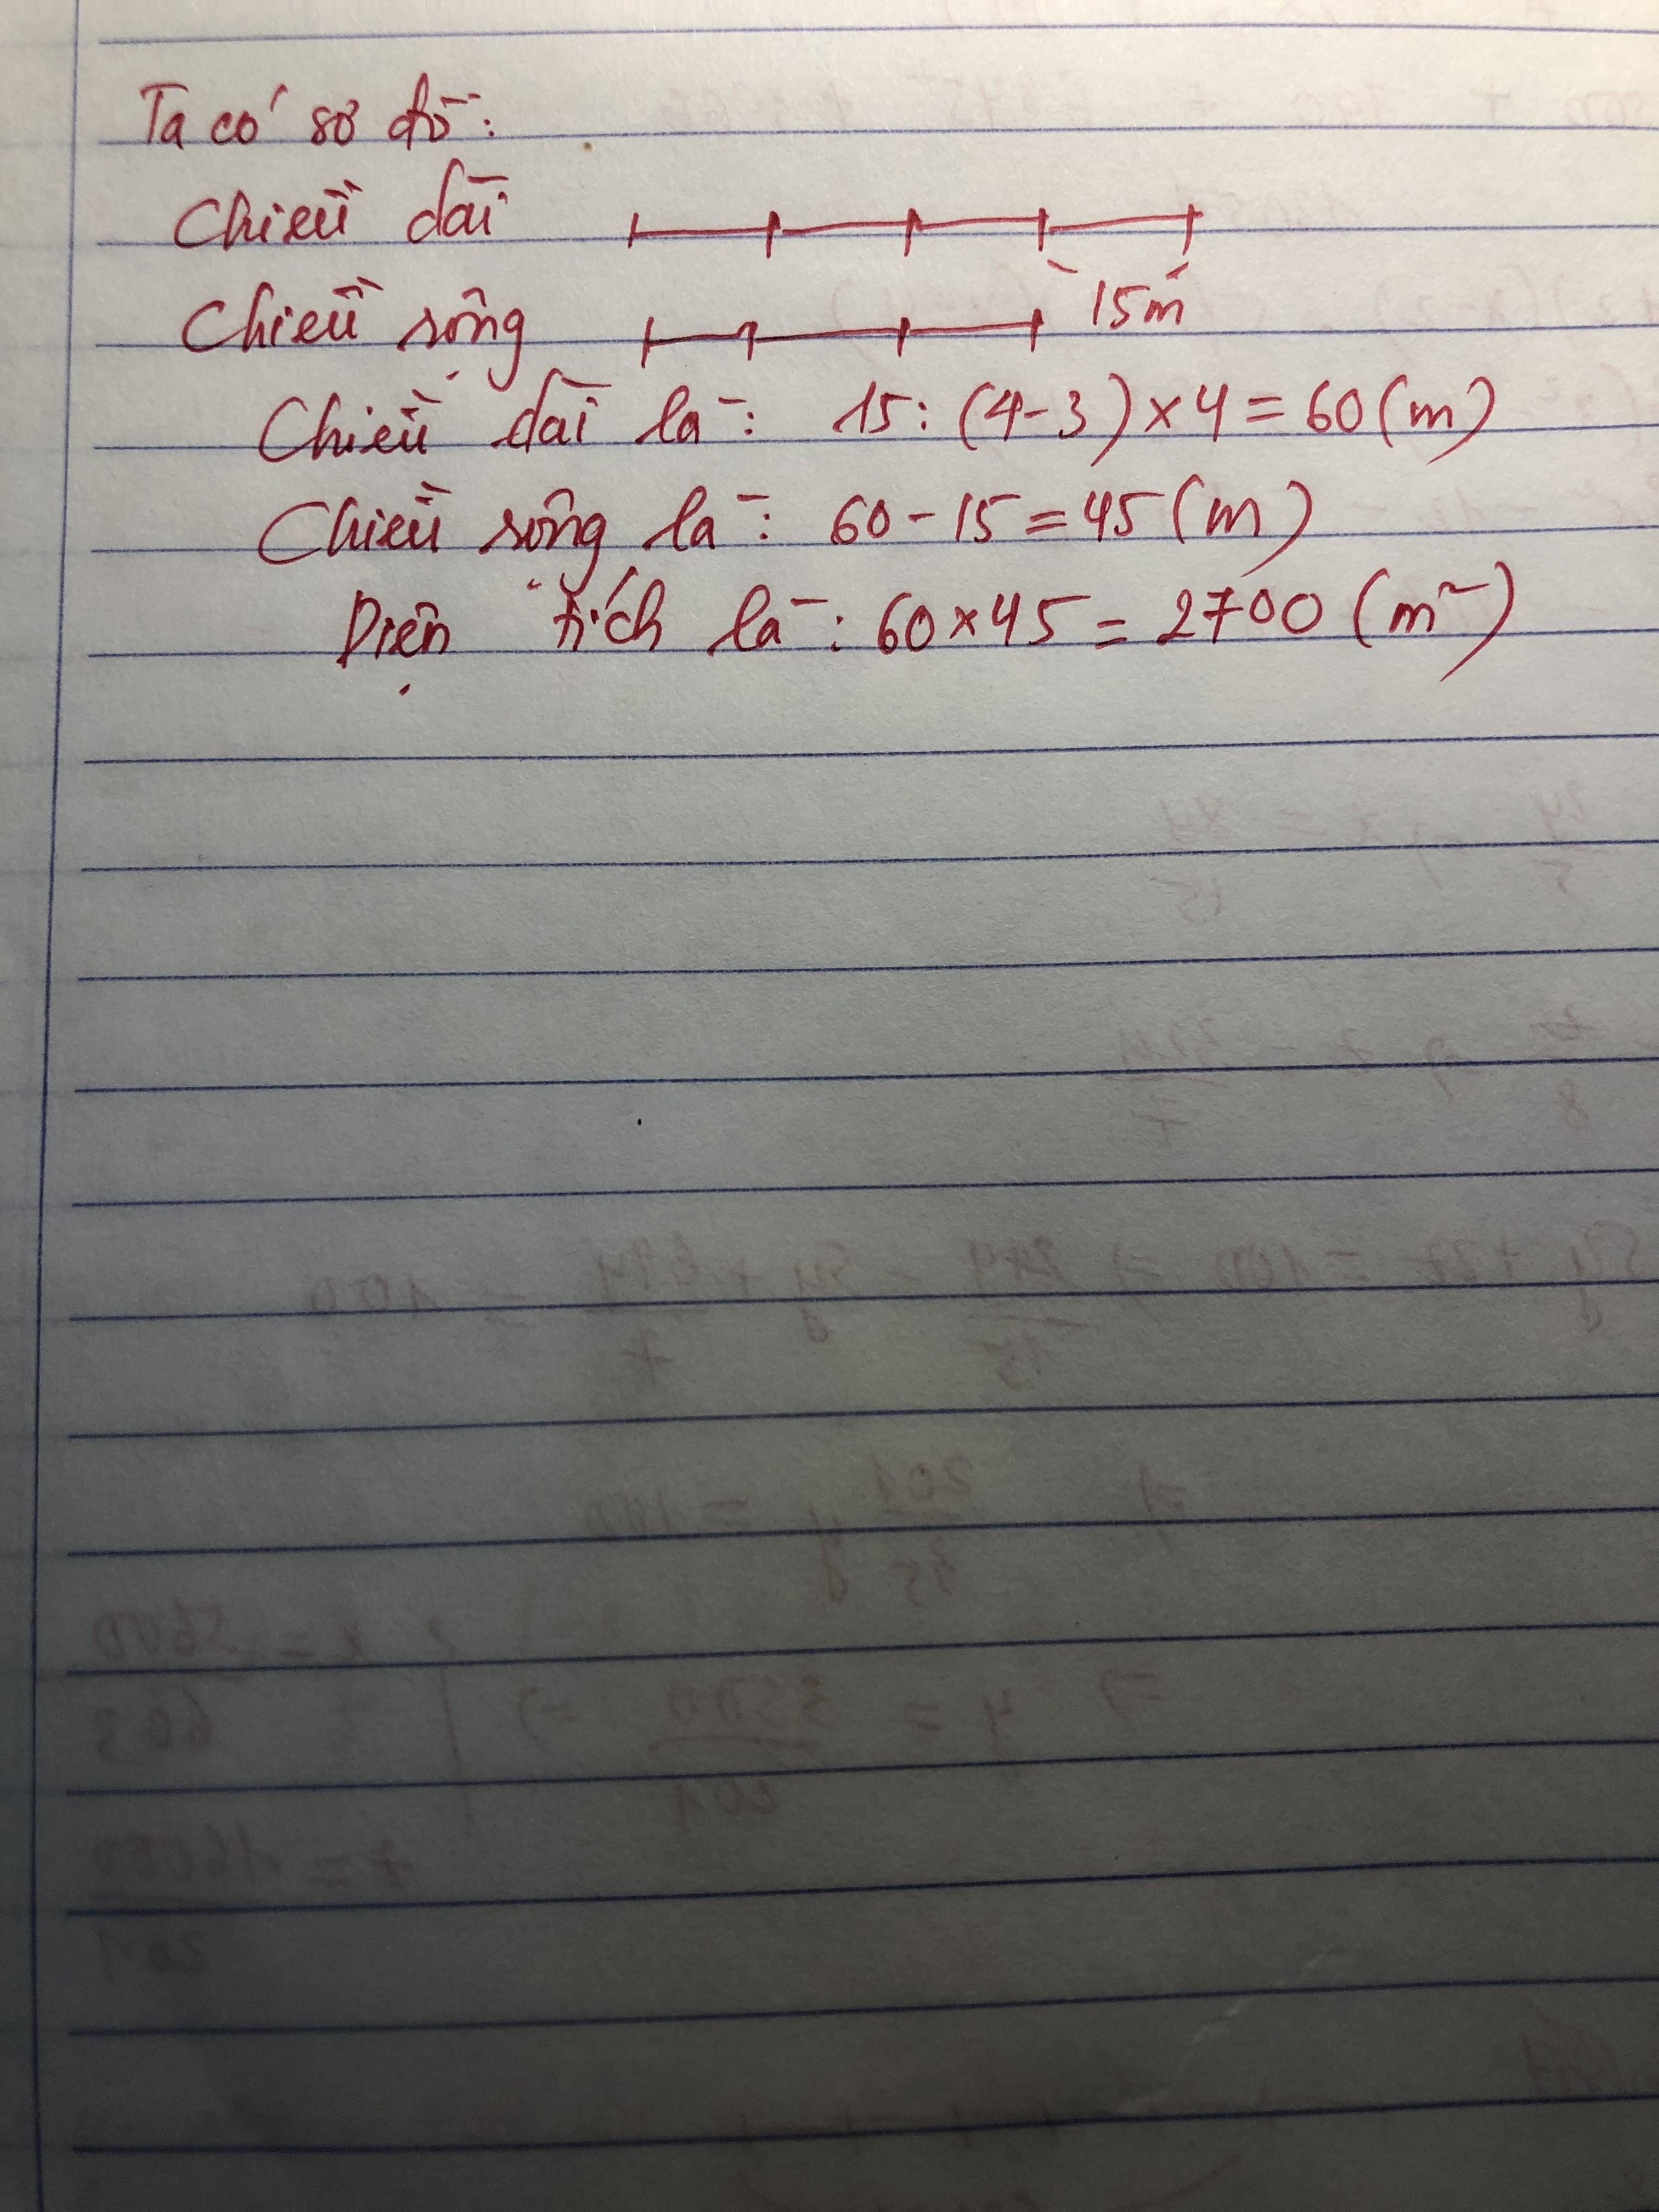 Ta có sơ đồ:
Chiều dài
15m
Chiều rộng
Chiều dài là: 15: (4-3)×4=60(m)
Chiều rộng là: 60-15=45(m)
Diện tích là: 60×45=2700(m²)